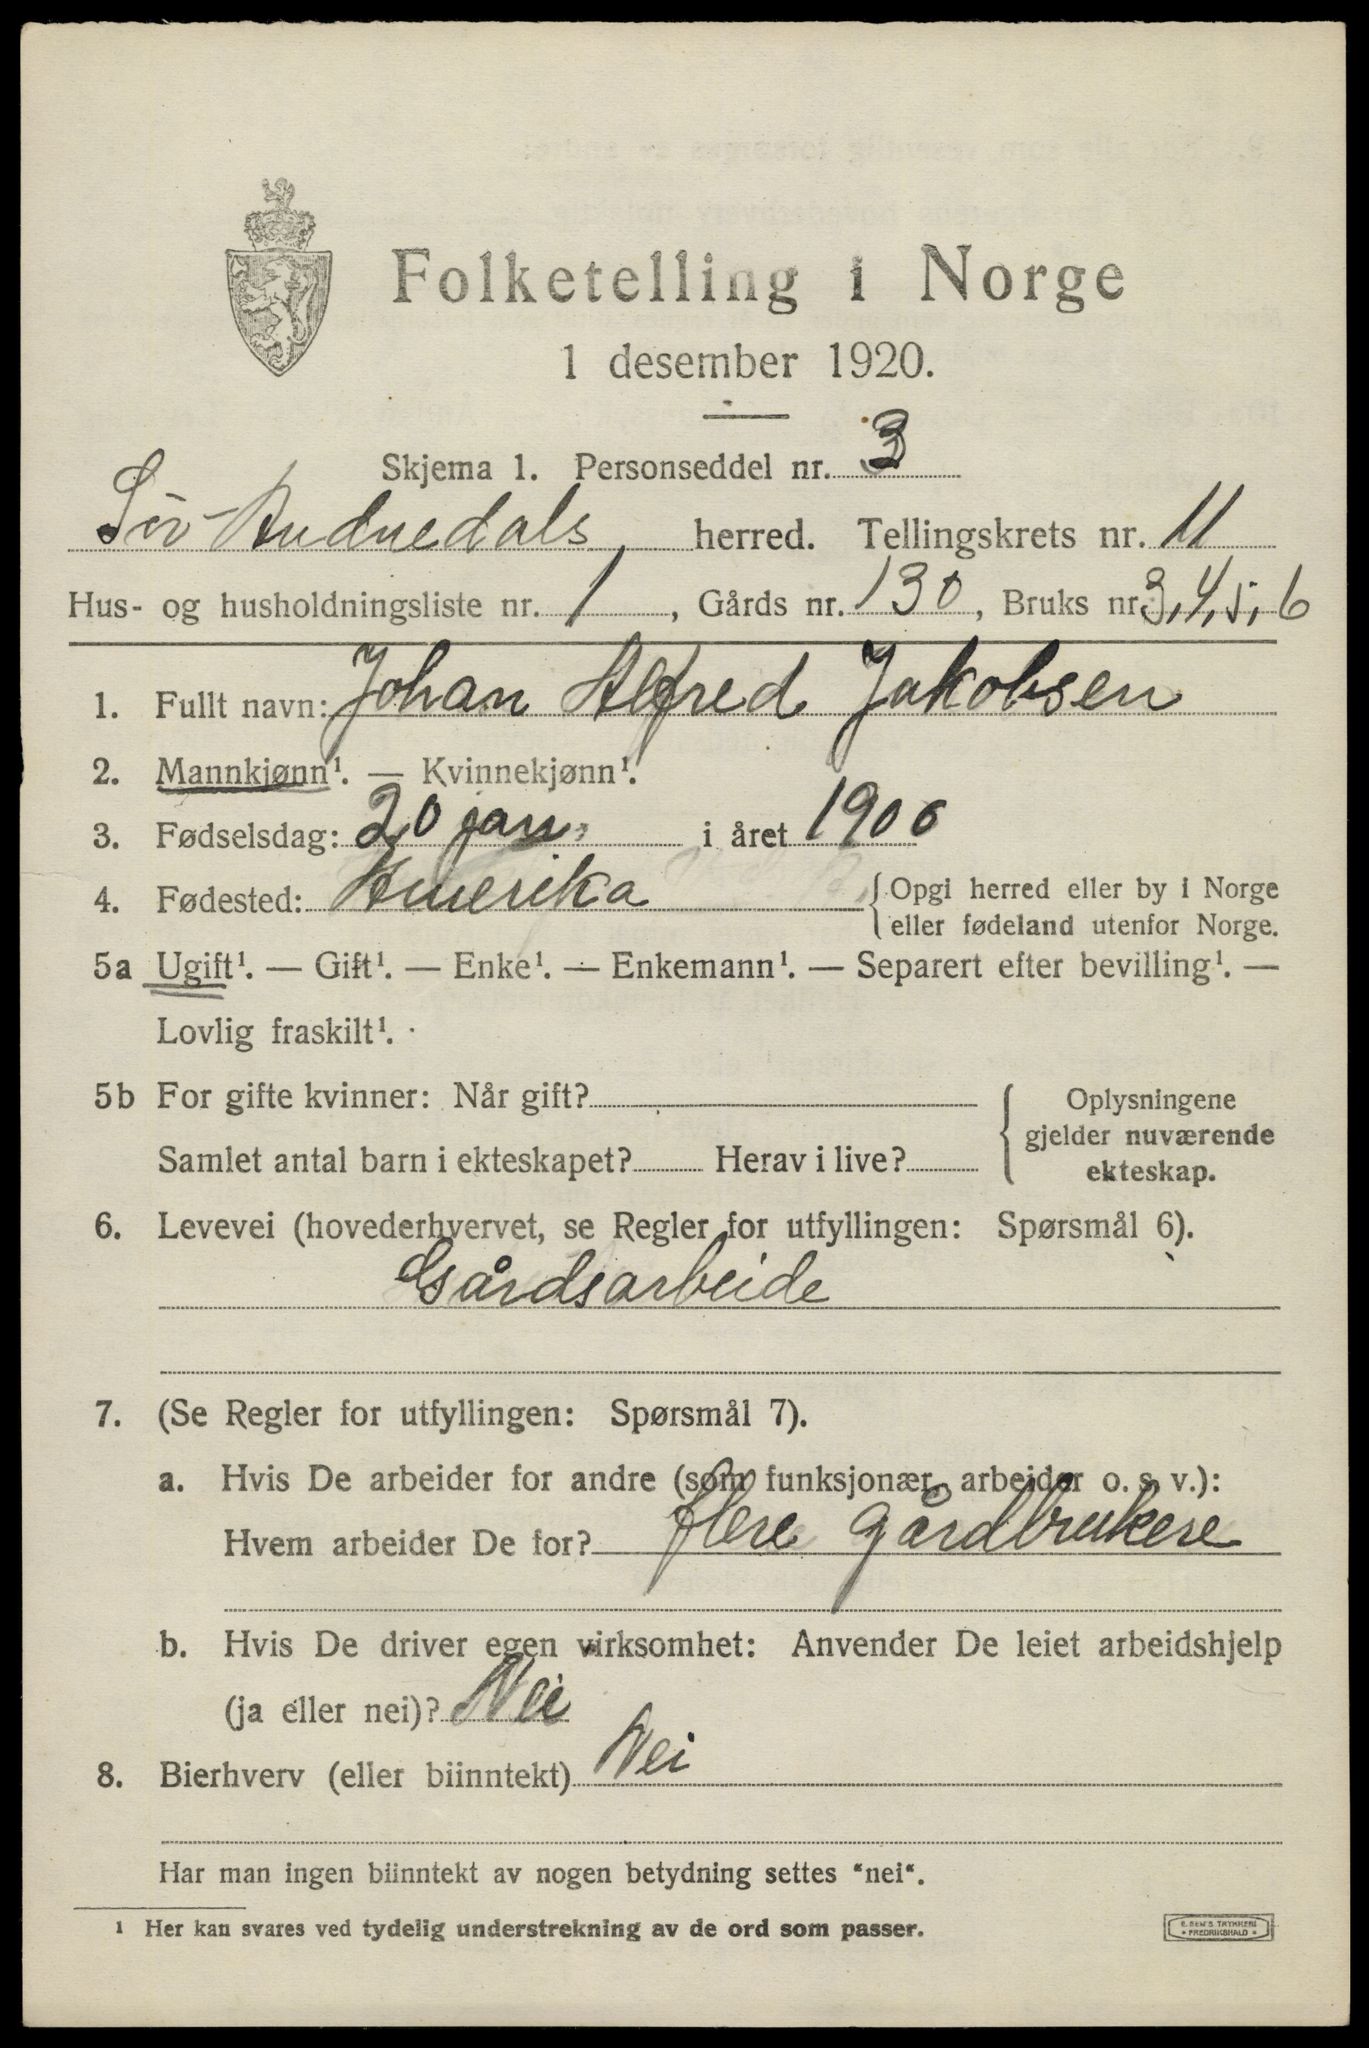 Folketelling i Norge
1 desember 1920.
Skjema 1. Personseddel nr. 3
Sør-Audnedals herred. Tellingskrets nr. 11
Hus- og husholdningsliste nr. 1, Gårds nr. 130, Bruks nr. 3, 4, 5, 6
1. Fullt navn: Johan Alfred Jakobsen
2. Mannkjønn¹. — Kvinnekjønn¹.
3. Fødselsdag: 20 jan. i året 1906
4. Fødested: Amerika {Opgi herred eller by i Norge
eller fødeland utenfor Norge.
5a Ugift¹. — Gift¹. — Enke¹. — Enkemann¹. — Separert efter bevilling¹. —
Lovlig fraskilt¹.
5b For gifte kvinner: Når gift?
Samlet antal barn i ekteskapet? Herav i live?
{Oplysningene
gjelder nuværende
ekteskap.
6. Levevei (hovederhvervet, se Regler for utfyllingen: Spørsmål 6).
Gårdsarbeide
7. (Se Regler for utfyllingen: Spørsmål 7).
a. Hvis De arbeider for andre (som funksjonær, arbeider o. s. v.):
Hvem arbeider De for? flere gårdbrukere
b. Hvis De driver egen virksomhet: Anvender De leiet arbeidshjelp
(ja eller nei)? Nei
8. Bierhverv (eller biinntekt) Nei
Har man ingen biinntekt av nogen betydning settes "nei".
¹ Her kan svares ved tydelig understrekning av de ord som passer.
E. SEM'S TRYKKERI
* FREDRIKSHALD *